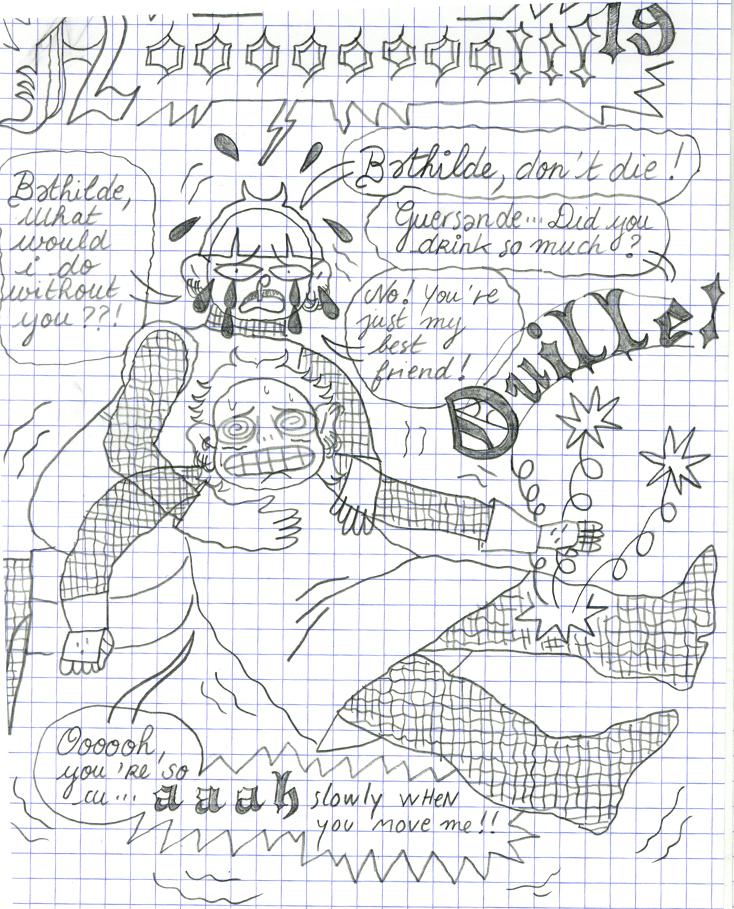 19
Noooooooo!!!
Bathilde, don't die !
Bathilde,
what
would
i do
without
you ??!
Guersande... Did you
drink so much ?
No! You're
just my
best
friend!
Ouille!
Oooooh,
you're so
cu...
aaah slowly wHeN
you move me!!